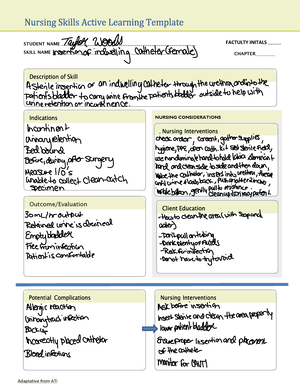 Nursing Skills Active Learning Template
STUDENT NAME Taylor Woods FACTULTY INITALS
SKILL NAME insertion of indwelling catheter (female) CHAPTER
Description of Skill
A sterile insertion or an indwelling catheter through the urethra, and into the
patient's bladder to carry urine from the patients bladder outside to help with
urine retention or incontinence.
Indications
Incontinent
Urinary retention
Bed bound
Before, during, after surgery
Measure I/O's
Unable to collect clean-catch
specimen
NURSING CONSIDERATIONS
Nursing Interventions
check order, consent, gather supplies,
hygiene, PPE, open cath kit
use nondominate hand to hold labia
hand, and clean side to side and then down,
lube the catheter, insert into urethra,
until urine flows back,
inflate balloon, gently pull to
Outcome/Evaluation
30 mL/hr output
Retained urine is drained
Empty bladder
Free from infection
Patient is comfortable
Client Education
-How to clean the area (with soap and
water)
-Don't pull on tubing
-Drink plenty of fluids
-Risk for infection
-Do not have to try to void
Potential Complications
Allergic reaction
Urinary tract infection
Back up
Incorrectly placed catheter
Blood infections
Nursing Interventions
Ask before insertion
Insert sterile and clean the area properly
lower patient bladder
Ensure proper insertion and placement
of the catheter
Monitor for
Adaptative from ATI